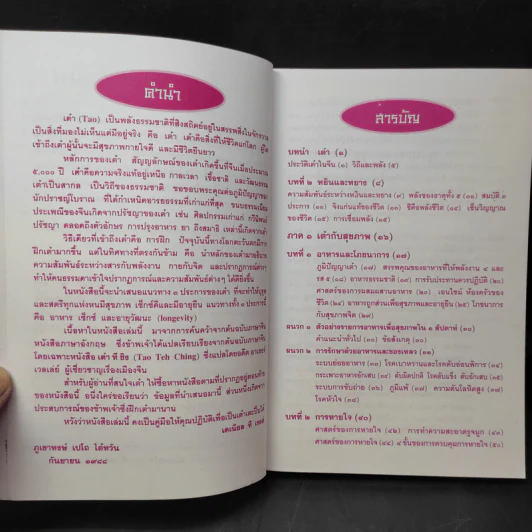 คำนำ
เต๋า (Tao) เป็นพลังธรรมชาติที่สิงสถิตย์อยู่ในสรรพสิ่งในจักรวาล
เป็นสิ่งที่มองไม่เห็นแต่มีอยู่จริง คือ เต๋า เต๋าคือสิ่งที่ให้ชีวิตแก่โลก ผู้ใด
เข้าถึงเต๋าผู้นั้นจะมีสุขภาพกายใจดี และมีชีวิตยืนยาว
หลักการของเต๋า สัญญลักษณ์ของเต๋าเกิดขึ้นที่จีนเมื่อประมาณ
๕,๐๐๐ ปี เต๋าคือความจริงแท้อยู่เหนือ กาลเวลา เชื้อชาติ และวัฒนธรรม
เต๋าเป็นสากล เป็นวิถีของธรรมชาติ ขอขอบพระคุณต่อภูมิปัญญา
นักปราชญ์โบราณ ที่ได้กำเหนิดอารยธรรมที่เก่าแก่ที่สุด ขนบธรรมเนียม
ประเพณีของจีนเกิดจากปรัชญาของเต๋า เช่น ศิลปกรรมเก่าแก่ กวีนิพนธ์
ปรัชญา ตลอดถึงตัวอักษร การปรุงอาหาร ยา ถึงสมาธิ เหล่านี้เกิดจากเต๋า
วิธีเดียวที่เข้าถึงเต๋าคือ การฝึก ปัจจุบันนี้ทางโลกตะวันตกมีการ
ฝึกเต๋ามากขึ้น แต่ในทิศทางที่ตรงกันข้าม คือ นำหลักของเต๋ามาอธิบาย
ความสัมพันธ์ระหว่างสารกับพลังงาน กายกับจิต และปรากฏการณ์ต่างๆ
ทำให้คนธรรมดาเข้าใจปรากฏการณ์และความสัมพันธ์ต่างๆ ได้ดียิ่งขึ้น
ในหนังสือนี้จะนำเสนอแนวทาง ๓ ประการของเต๋า ที่จะทำให้บุรุษ
และสตรีทุกแห่งหนมีสุขภาพ เซ็กซ์ดีและมีอายุยืน แนวทางทั้ง ๓ ประการนี้
คือ อาหาร เซ็กซ์ และอายุวัฒนะ (longevity)
เนื้อหาในหนังสือเล่มนี้ มาจากการค้นคว้าจากต้นฉบับภาษาจีน
หนังสือภาษาอังกฤษ ซึ่งข้าพเจ้าได้แปลเรียบเรียงจากต้นฉบับภาษาจีน
โดยเฉพาะหนังสือ เต๋า ที ชิง (Tao Teh Ching) ซึ่งแปลโดยอดีต อาเธอร์
เวลเล่ย์ ผู้เชี่ยวชาญเรื่องเมืองจีน
สำหรับผู้อ่านที่สนใจเต๋า ให้ซื้อหนังสือตามที่ปรากฏอยู่ตอนท้าย
ของหนังสือนี้ อนึ่งใคร่ขอเรียนว่า ข้อมูลที่นำเสนอมานี้ ส่วนหนึ่งเกิดจาก
ประสบการณ์ของข้าพเจ้าซึ่งฝึกเต๋ามานาน
หวังว่าหนังสือเล่มนี้ คงเป็นคู่มือให้คุณปฏิบัติเพื่อเป็นเต๋าคนหนึ่งได้
เดเนียล ที
ภูเขาหงษ์ เปโถ ไต้หวัน
กันยายน ๑๙๘๘
สารบัญ
บทนำ เต๋า (๑)
ประวัติเต๋าในจีน (๑) วิถีและพลัง (๕)
บทที่ ๒ หยินและหยาง (๘)
ความสัมพันธ์ระหว่างหยินและหยาง (๙) พลังของธาตุทั้ง ๕ (๑๑) สมบัติ ๓
ประการ (๑๒) จิงแก่นแท้ของชีวิต (๑๓) ชีคือพลังชีวิต (๑๔) เซิ่นวิญญาณ
ของชีวิต (๑๕) การเชื่อมพลัง (๑๕)
ภาค ๑ เต๋ากับสุขภาพ (๑๖)
บทที่ ๑ อาหารและโภชนาการ (๑๗)
ภูมิปัญญาเต๋า (๑๗) สรรพคุณของอาหารที่ให้พลังงาน ๔ และ
รส ๕ (๑๘) อาหารธรรมชาติ (๑๘) การรับประทานควบปฏิบัติ (๑๘)
ศาสตร์ของการผสมผสานอาหาร (๒๐) เอนไซม์ ห้องครัวของ
ชีวิต (๒๔) อาหารถูกส่วนเพื่อสุขภาพและอายุยืน (๒๕) โภชนาการ
กับสุขภาพจิต (๒๘)
ผนวก ๑ ตัวอย่างรายการอาหารเพื่อสุขภาพใน ๑ สัปดาห์ (๓๑)
คำแนะนำทั่วไป (๓๑) ข้อสังเกตุ (๓๓)
ผนวก ๒ การรักษาด้วยอาหารและของเหลว (๓๓)
ระบบย่อยอาหาร (๓๓) โรคเบาหวานและโรคตับอ่อนพิการ (๓๔)
กระเพาะอาหารอักเสบ (๓๔) ตับผิดปกติ โรคตับแข็ง ตับอักเสบ (๓๕)
ระบบการขับถ่าย (๓๖) ภูมิแพ้ (๓๗) ความดันโลหิตสูง (๓๗)
โรคหัวใจ (๓๘)
บทที่ ๒ การหายใจ (๔๐)
ศาสตร์ของการหายใจ (๔๒) การทำความสะอาดรูจมูก (๔๓)
ศาสตร์ของการหายใจ (๔๔) ๔ ขั้นของการควบคุมการหายใจ (๕๐)